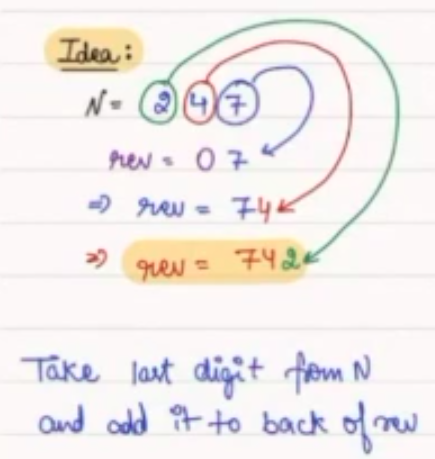 Idea:
N = 2 4 7
rev = 0 7
⇒ rev = 74
⇒ rev = 742
Take last digit from N
and add it to back of rev